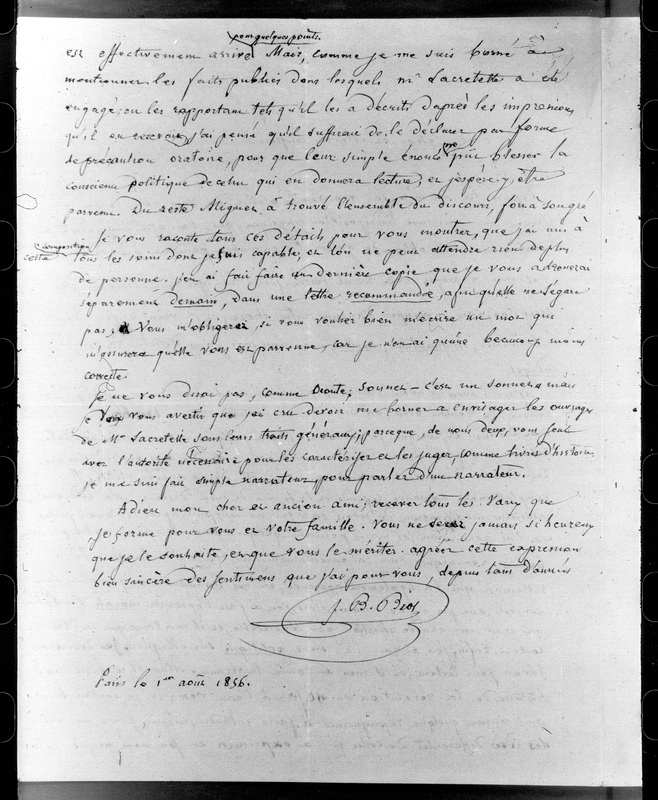 pour quelques points.
est effectivement arrivé Mais, comme je me suis borné à
mentionner les faits publics dans lesquels mr Lacretelle a été
engagé, en les rapportant tels qu'il les a décrits d'après les impressions
qu'il en recevait, j'ai pensé qu'il suffirait de le déclarer par forme
de précaution oratoire, pour que leur simple énoncé ne pût blesser la
conscience politique de celui qui en donnera lecture; et j'espère y être
parvenu. Du reste Mignet a trouvé l'ensemble du discours fort à son gré
Je vous raconte tous ces détails pour vous montrer, que j'ai mis à
cette composition tous les soins dont je suis capable, et l'on ne peut attendre rien de plus
de personne. j'en ai fait faire une dernière copie que je vous adresserai
séparément demain, dans une lettre recommandée, afin qu'elle ne s'égare
pas. Vous m'obligerez si vous voulez bien m'écrire un mot qui
m'assurera qu'elle vous est parvenue, car je n'en ai qu'une beaucoup moins
correcte.
Je ne vous dirai pas, comme Oronte; Sonnet – c'est un sonnet mais
je veux vous avertir que j'ai cru devoir me borner à envisager les ouvrages
de Mr Lacretelle sous leurs traits généraux; parceque, de nous deux, vous seul
avez l'autorité nécessaire pour les caractériser et les juger, comme livres d'histoire.
je me suis fait simple narrateur, pour parler d'un narrateur.
Adieu mon cher et ancien ami; recevez tous les vœux que
je forme pour vous et votre famille. Vous ne serez jamais si heureux
que je le souhaite, et que vous le méritez. agréez cette expression
bien sincère des sentimens que j'ai pour vous, depuis tant d'années
J. B. Biot
Paris le 1er août 1856.